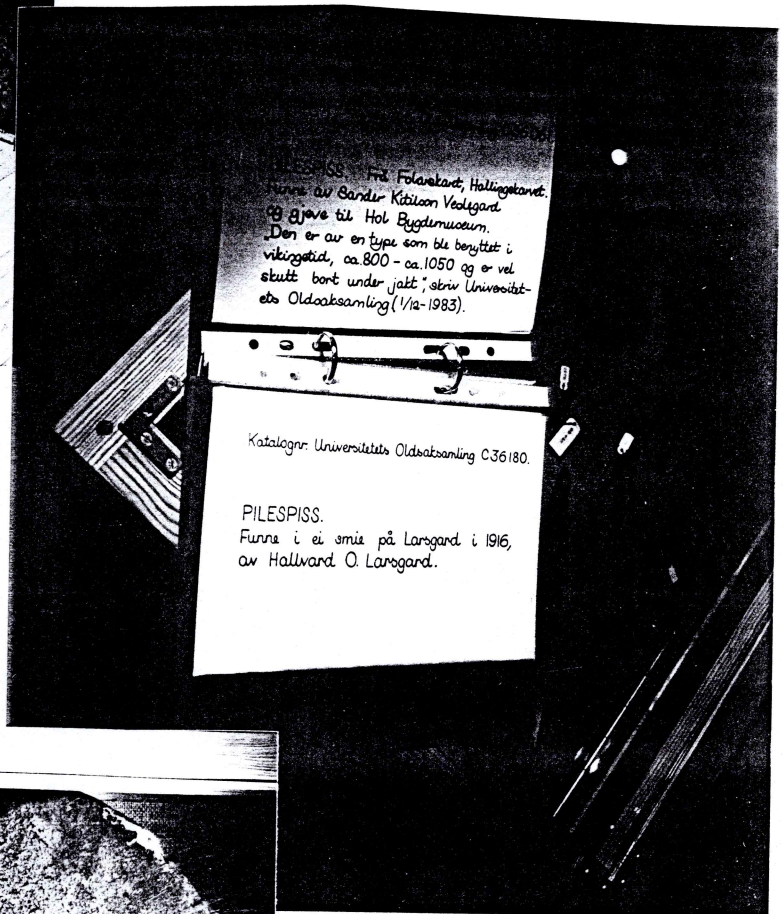 PILESPISS. Frå Folarskaret, Hallingskarvet.
Funne av Sander Kitilson Vedegard
og gjeve til Hol Bygdemuseum.
„Den er av en type som ble benyttet i
vikingtid, ca.800 - ca.1050 og er vel
skutt bort under jakt", skriv Universitet-
ets Oldsaksamling (1/12-1983).
Katalognr. Universitetets Oldsaksamling C36180.
PILESPISS.
Funne i ei smie på Larsgard i 1916,
av Hallvard O. Larsgard.